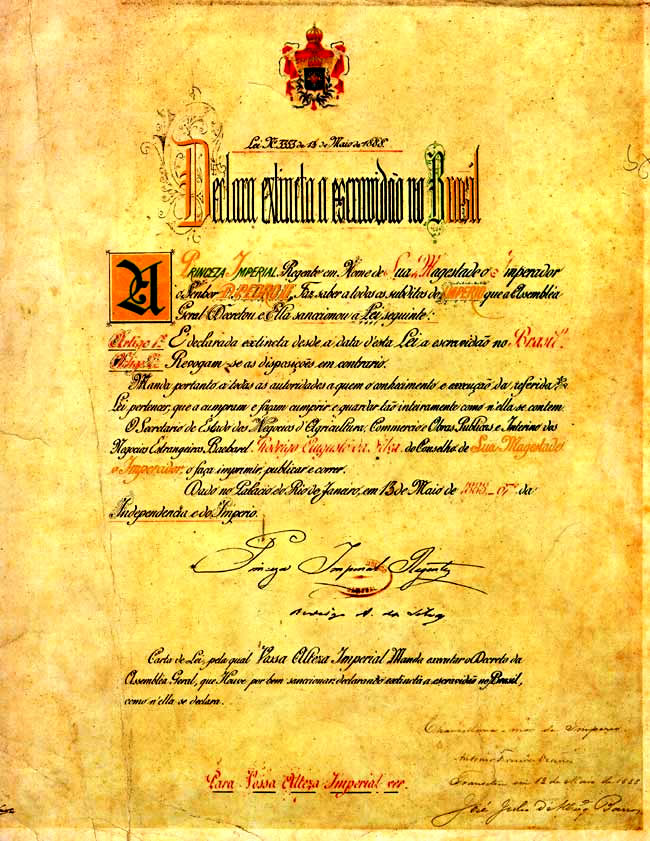 Lei Nº 3353 de 13 de Maio de 1888.
Declara extincta a escravidão no Brasil
A PRINCEZA IMPERIAL Regente em Nome de Sua Magestade o Imperador
o Senhor D. PEDRO II, Faz saber a todos os subditos do IMPERIO que a Assembléa
Geral Decretou e Ella sanccionou a Lei seguinte:
Artigo 1º É declarada extincta desde a data d'esta Lei a escravidão no Brasil.
Artigo 2º Revogam-se as disposições em contrario.
Manda portanto a todas as autoridades a quem o conhecimento e execução da referida
Lei pertencer, que a cumpram e façam cumprir e guardar tão inteiramente como n'ella se contem.
O Secretario de Estado dos Negocios d'Agricultura, Commercio e Obras Publicas e Interino dos
Negocios Estrangeiros Bacharel Rodrigo Augusto da Silva do Conselho de Sua Magestade
o Imperador, o faça imprimir, publicar e correr.
Dado no Palacio do Rio de Janeiro, em 13 de Maio de 1888_67º da
Independencia e do Imperio.
Princeza Imperial Regente
Rodrigo A. da Silva
Carta de Lei, pela qual Vossa Alteza Imperial Manda executar o Decreto da
Assembléa Geral, que Houve por bem sanccionar declarando extincta a escravidão no Brasil,
como n'ella se declara.
Chancellaria mor do Imperio
Antonio Ferreira Vianna
Transitou em 13 de Maio de 1888
José Julio de Albuqº Barros
Para Vossa Alteza Imperial ver.